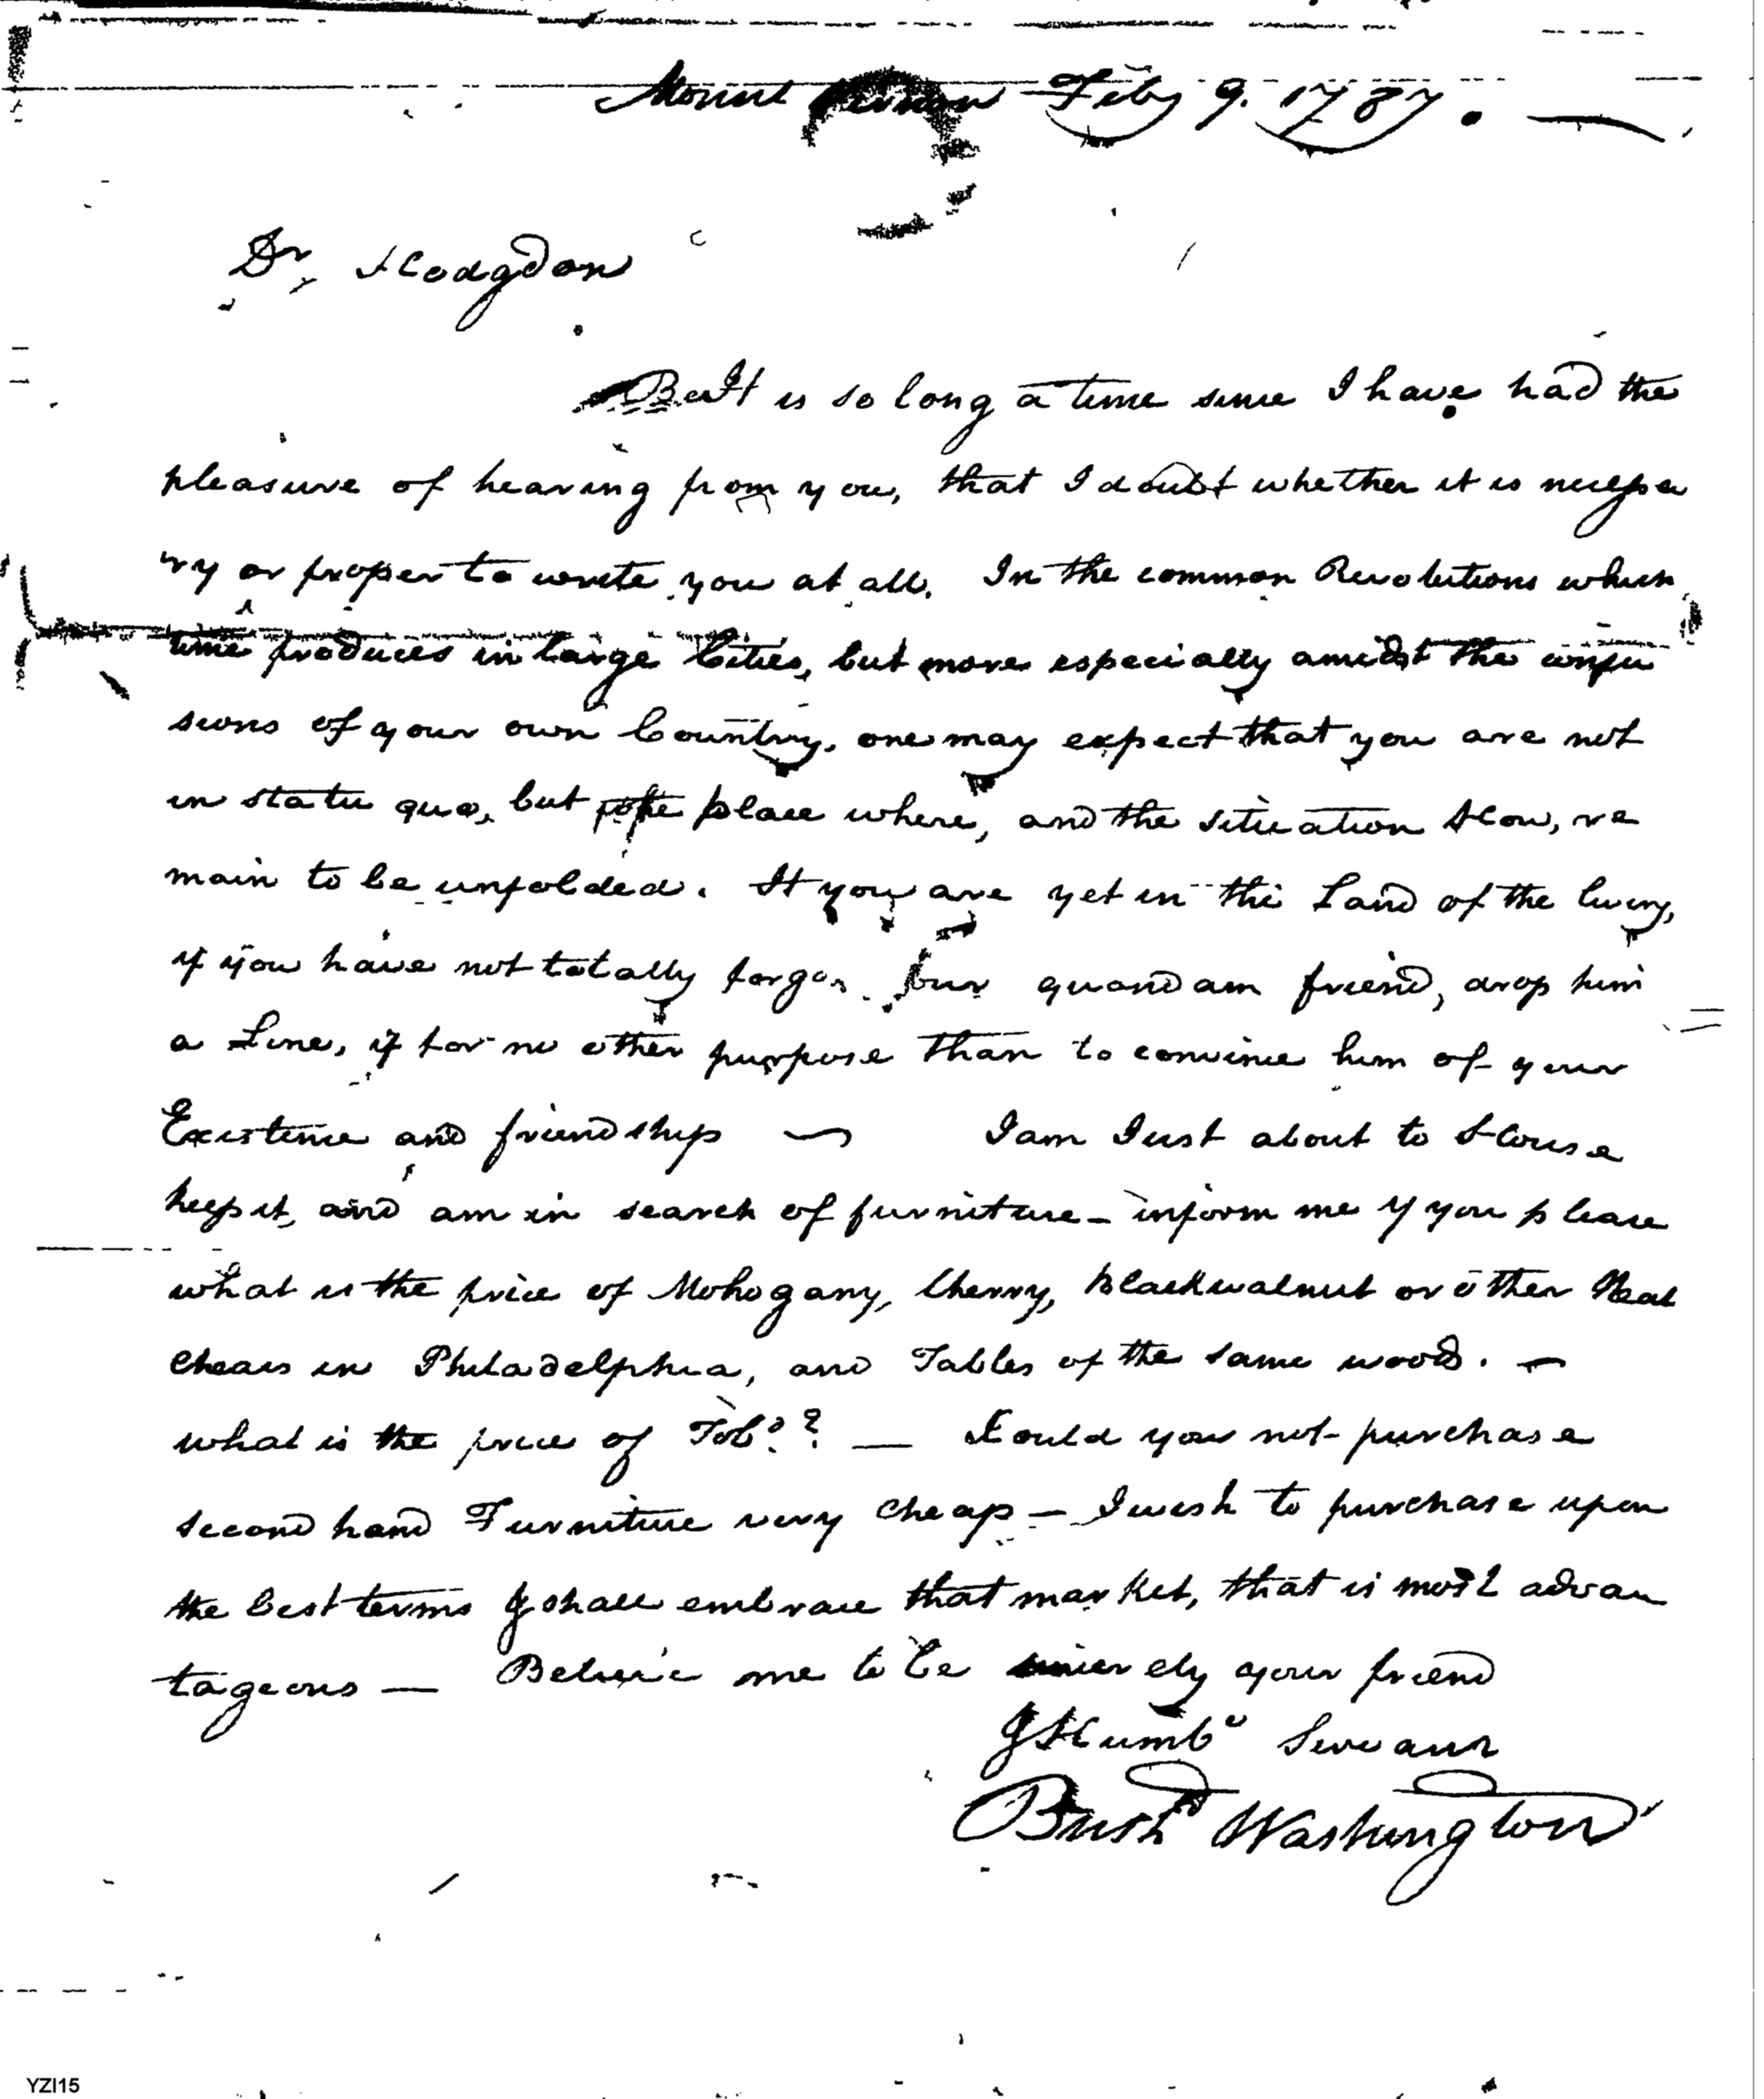 Mount Vernon Feby 9. 1787.
Dr Hodgdon
It is so long a time since I have had the
pleasure of hearing from you, that I doubt whether it is necessa
ry or proper to write you at all. In the common Revolutions which
time produces in large Cities, but more especially amidst the confu
sions of your own Country, one may expect that you are not
in statu quo, but the place where, and the situation How, re
main to be unfolded. If you are yet in the Land of the living,
if you have not totally your quondam friend, drop him
a Line, if for no other purpose than to convince him of your
Existence and friendship — I am Just about to House
keep it, and am in search of furniture — inform me if you please
what is the price of Mohogany, Cherry, blackwalnut or other Neat
Chears in Philadelphia, and Tables of the same wood. —
what is the price of Tobo.? — Could you not purchase
second hand Furniture very cheap — I wish to purchase upon
the best terms & shall embrace that market, that is most advan
tageous — Believe me to be sincerely your friend
& Humbe Servant
Bushd Washington
YZI15